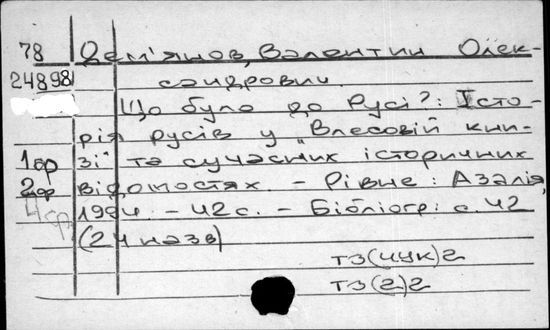 78 Дем'янов, Валентин Олек-
24898 сандрович.
Що було до Русі?: Істо-
рія русів у „Влесовій кни-
1ор зі" та сучасних історичних
2ор відомостях. – Рівне: Азалія,
4ор 1994. – 42с. – Бібліогр: с. 42
(24 назв)
ТЗ(4УК)2
ТЗ(2)2